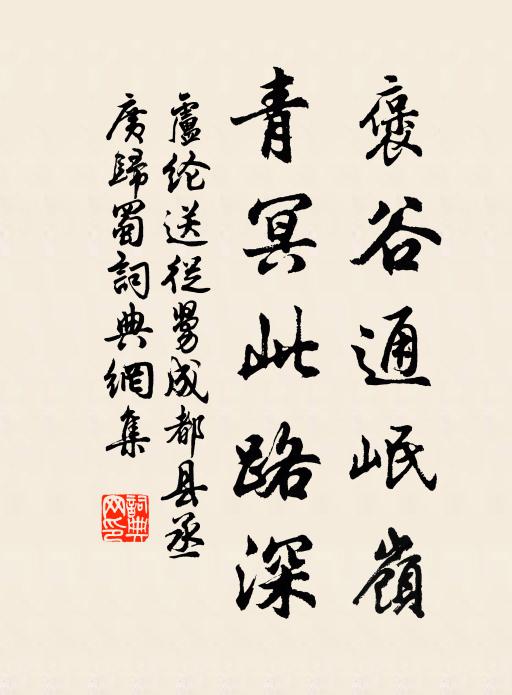 褒谷通岷嶺
青冥此路深
盧纶送從舅成都县丞
廣歸蜀詞典網集
詞典網印